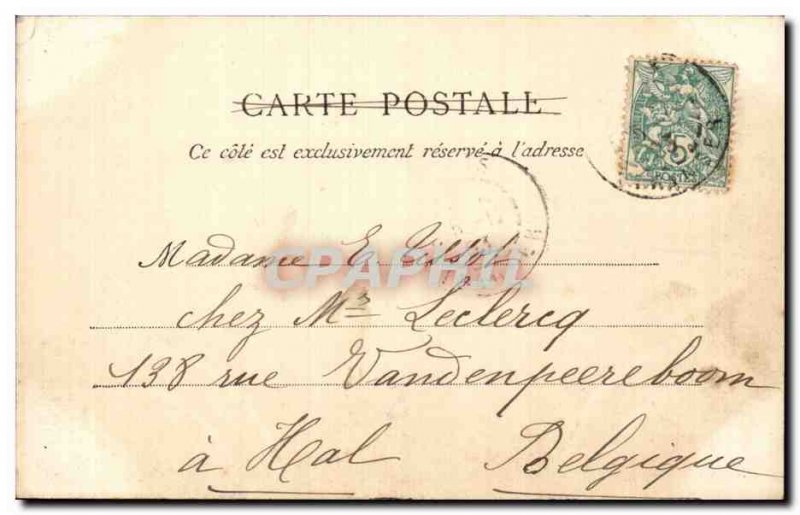 CARTE POSTALE
Ce côté est exclusivement réservé à l'adresse
Madame E. Tissot
CPAPHIL
chez Mr Leclercq
138 rue Vandenpeereboom
à Hal Belgique